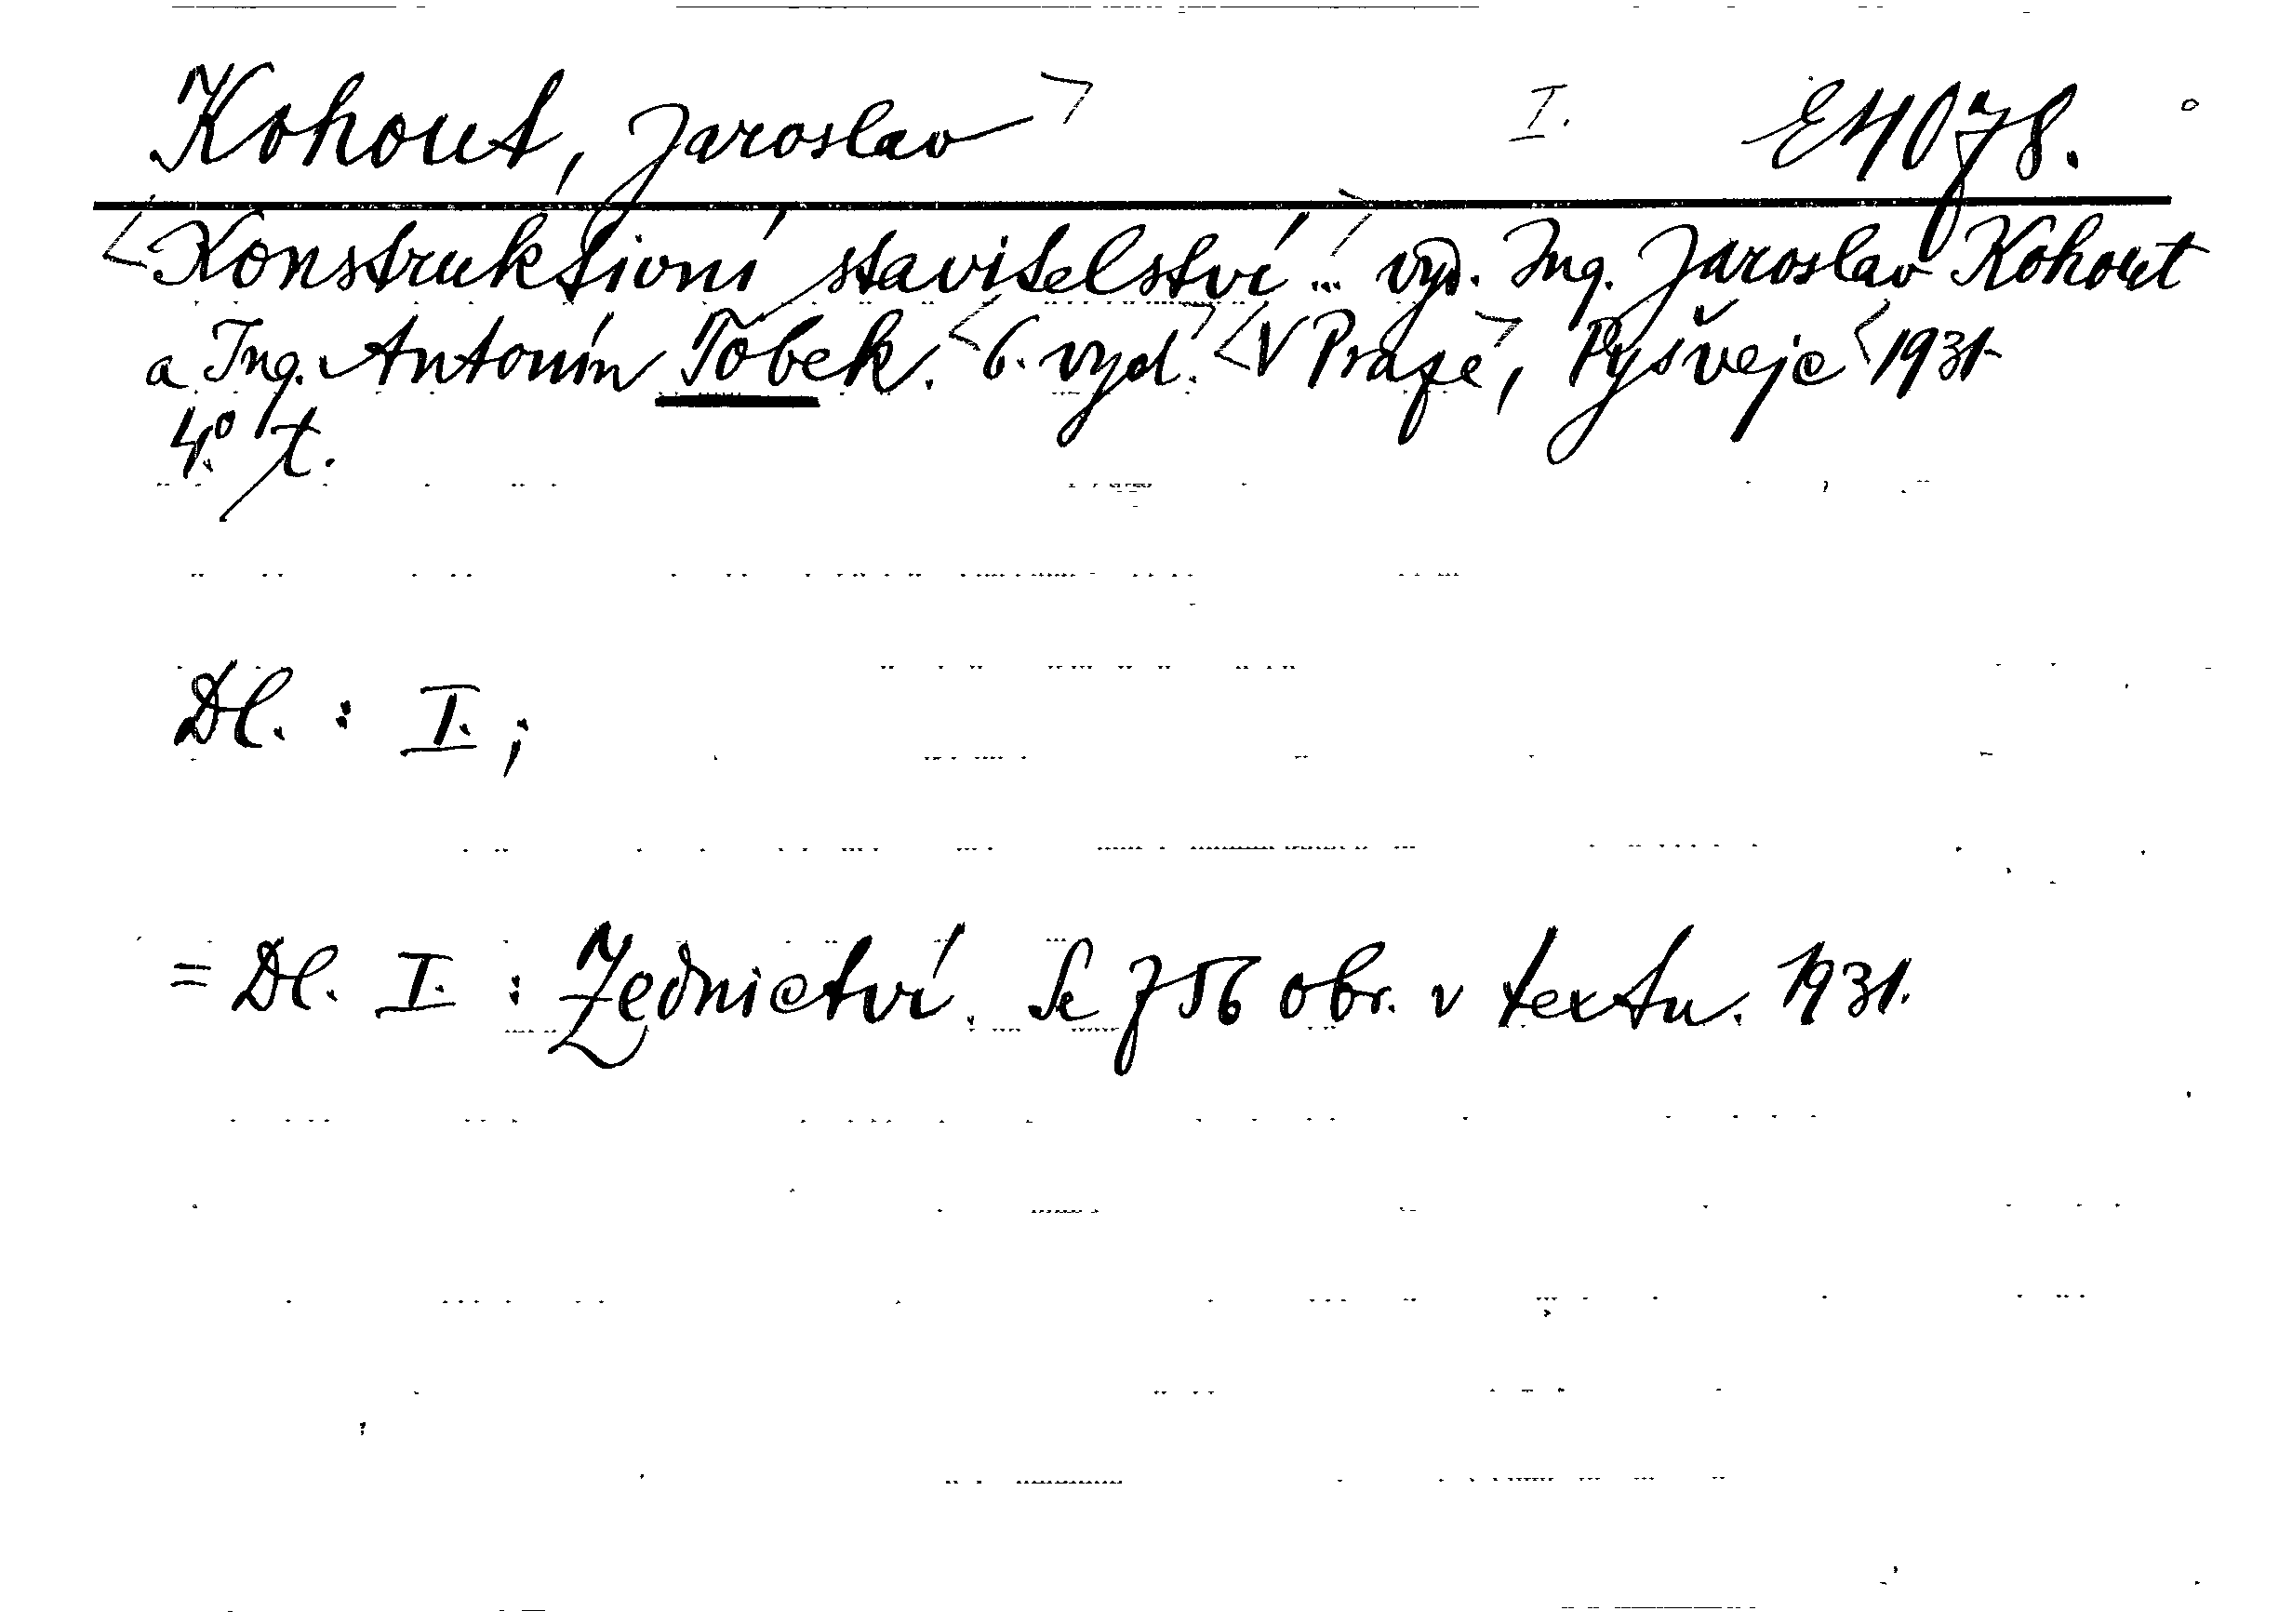 Kohout, Jaroslav I. E4078.
Konstruktivní stavitelství... vyd. Ing. Jaroslav Kohout
a Ing. Antonín Tobek. 6. vyd. V Praze, Pyšvejc 1931-
4° t.
Dl. : I. ;
= Dl. I. : Zednictví. Se 756 obr. v textu. 1931.